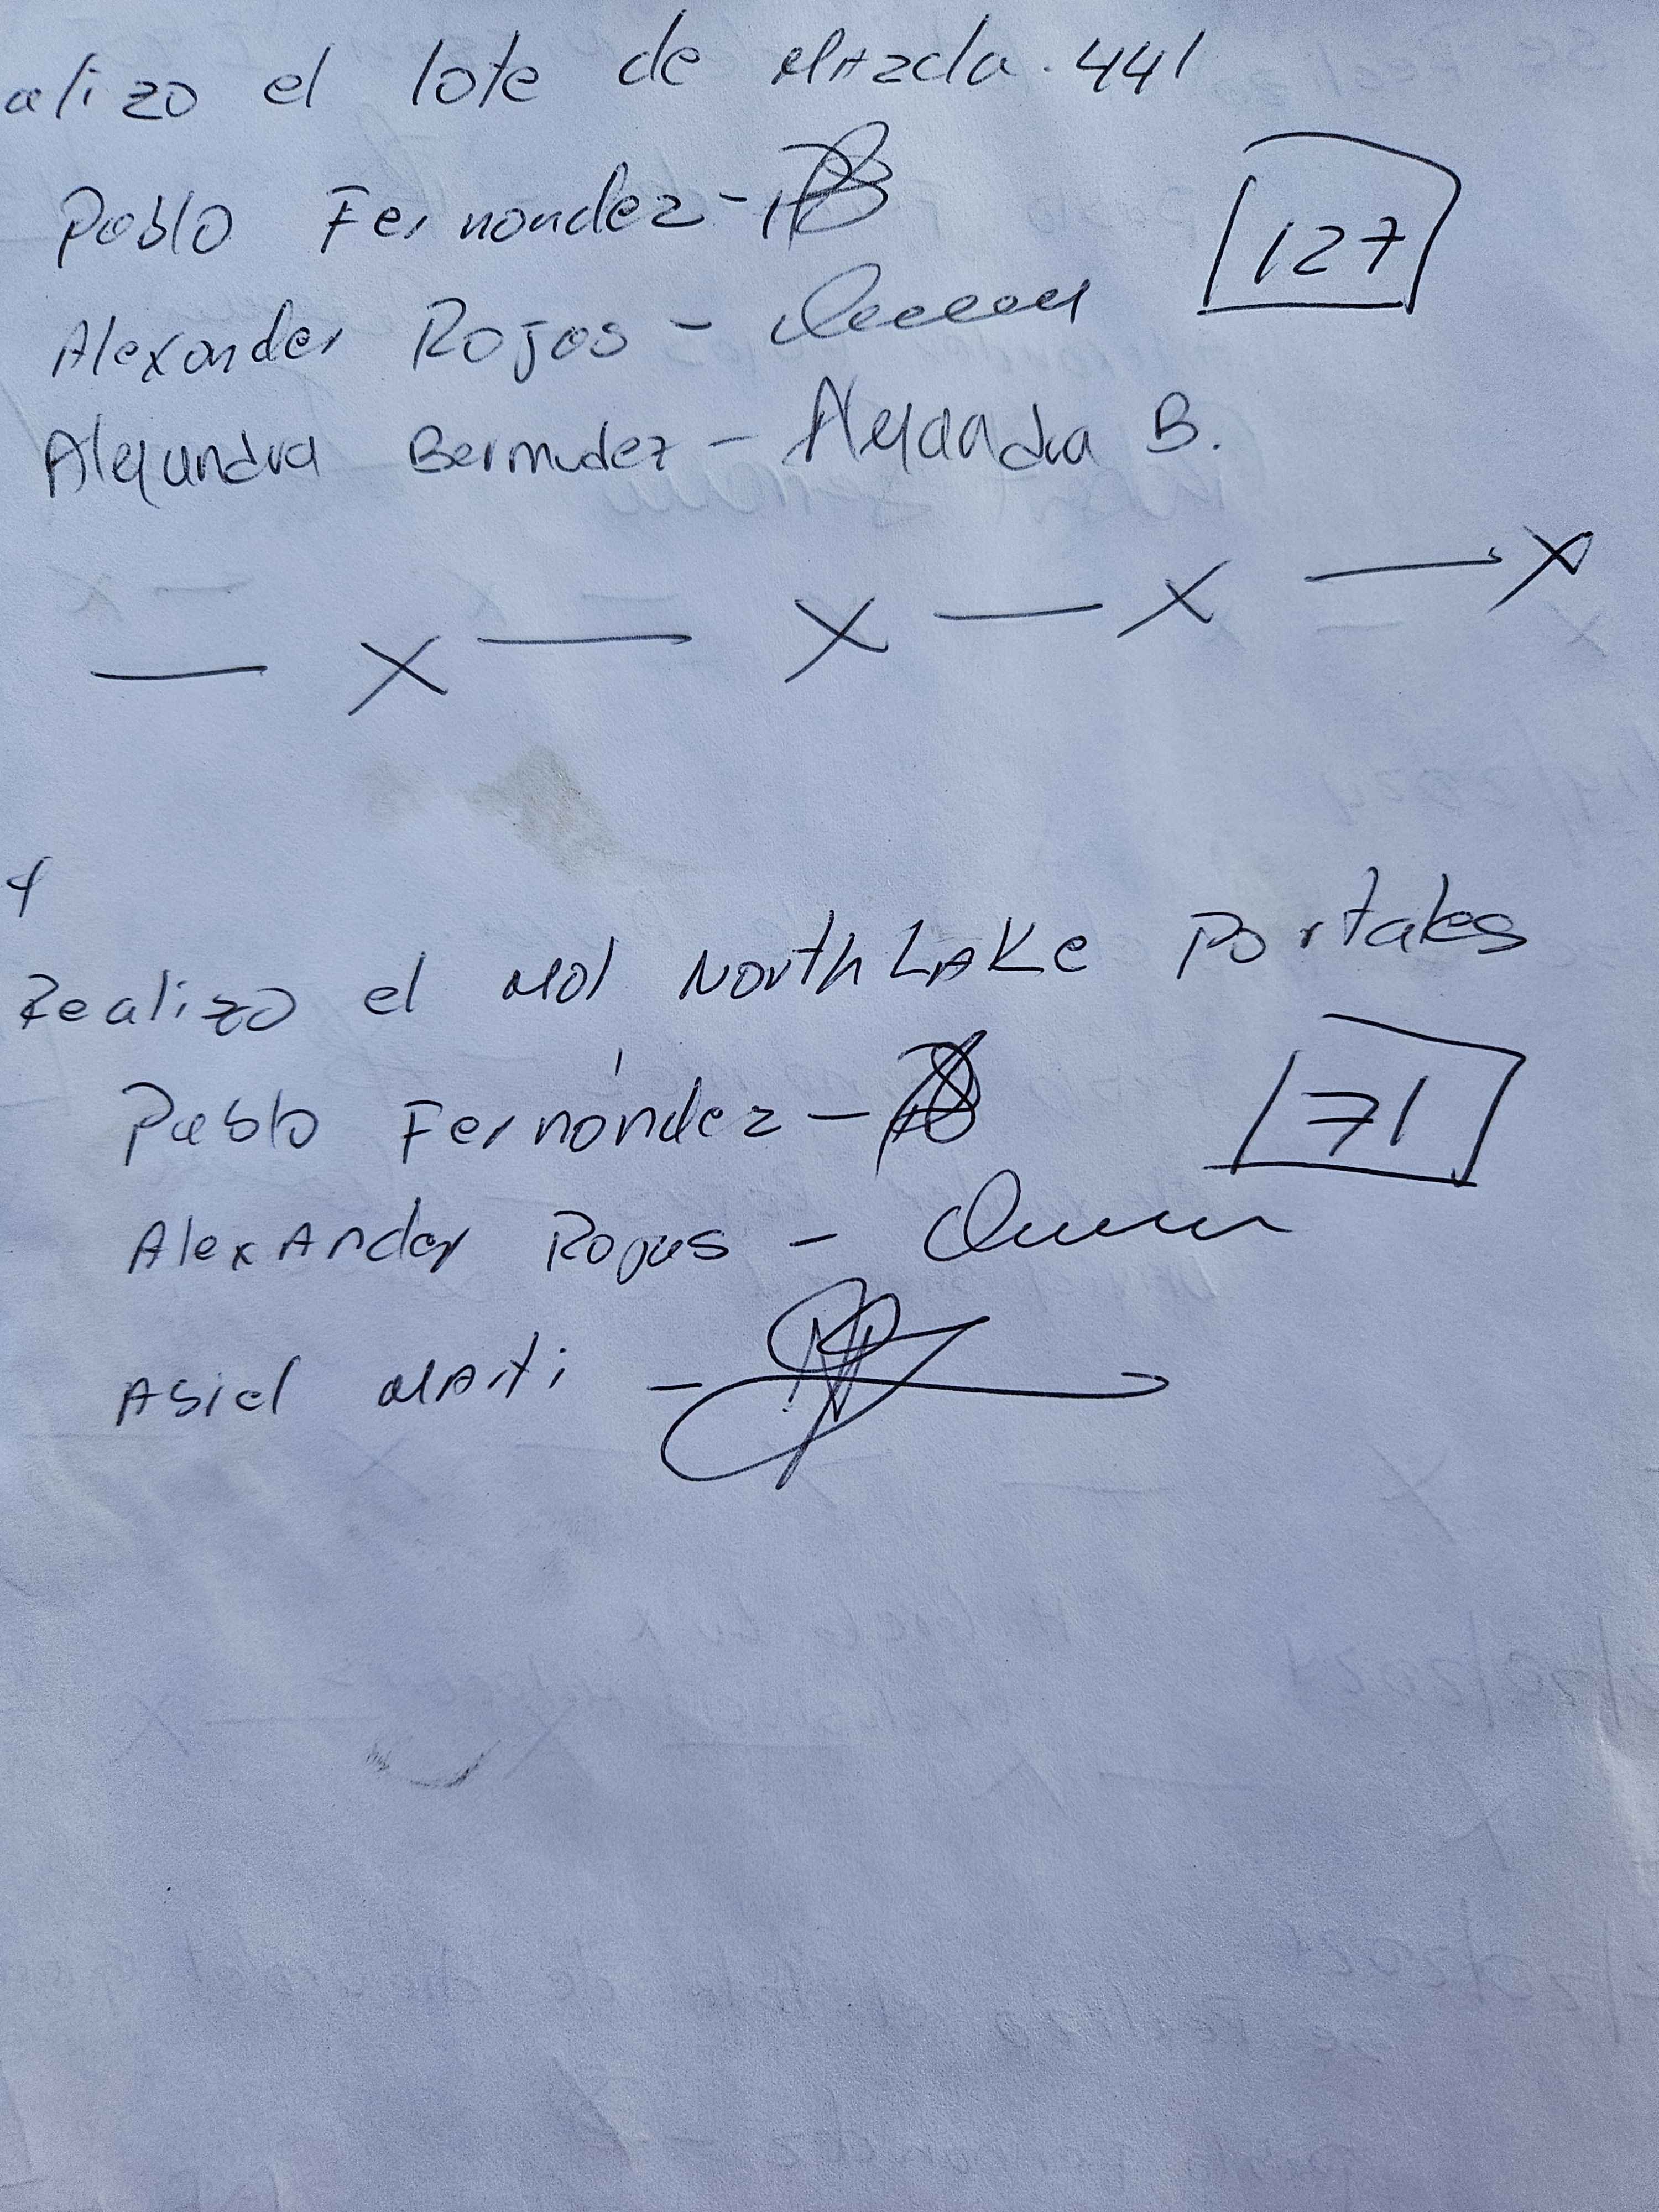 alizo el lote de Mazda. 441
Pablo Fernandez -
127
Alexander Rojas -
Alejandra Bermudez - Alejandra B.
— X — X — X — X
4
Realizo el Mol North Lake Portales
Pablo Fernández -
71
Alexander Rojas -
Asiel Marti -